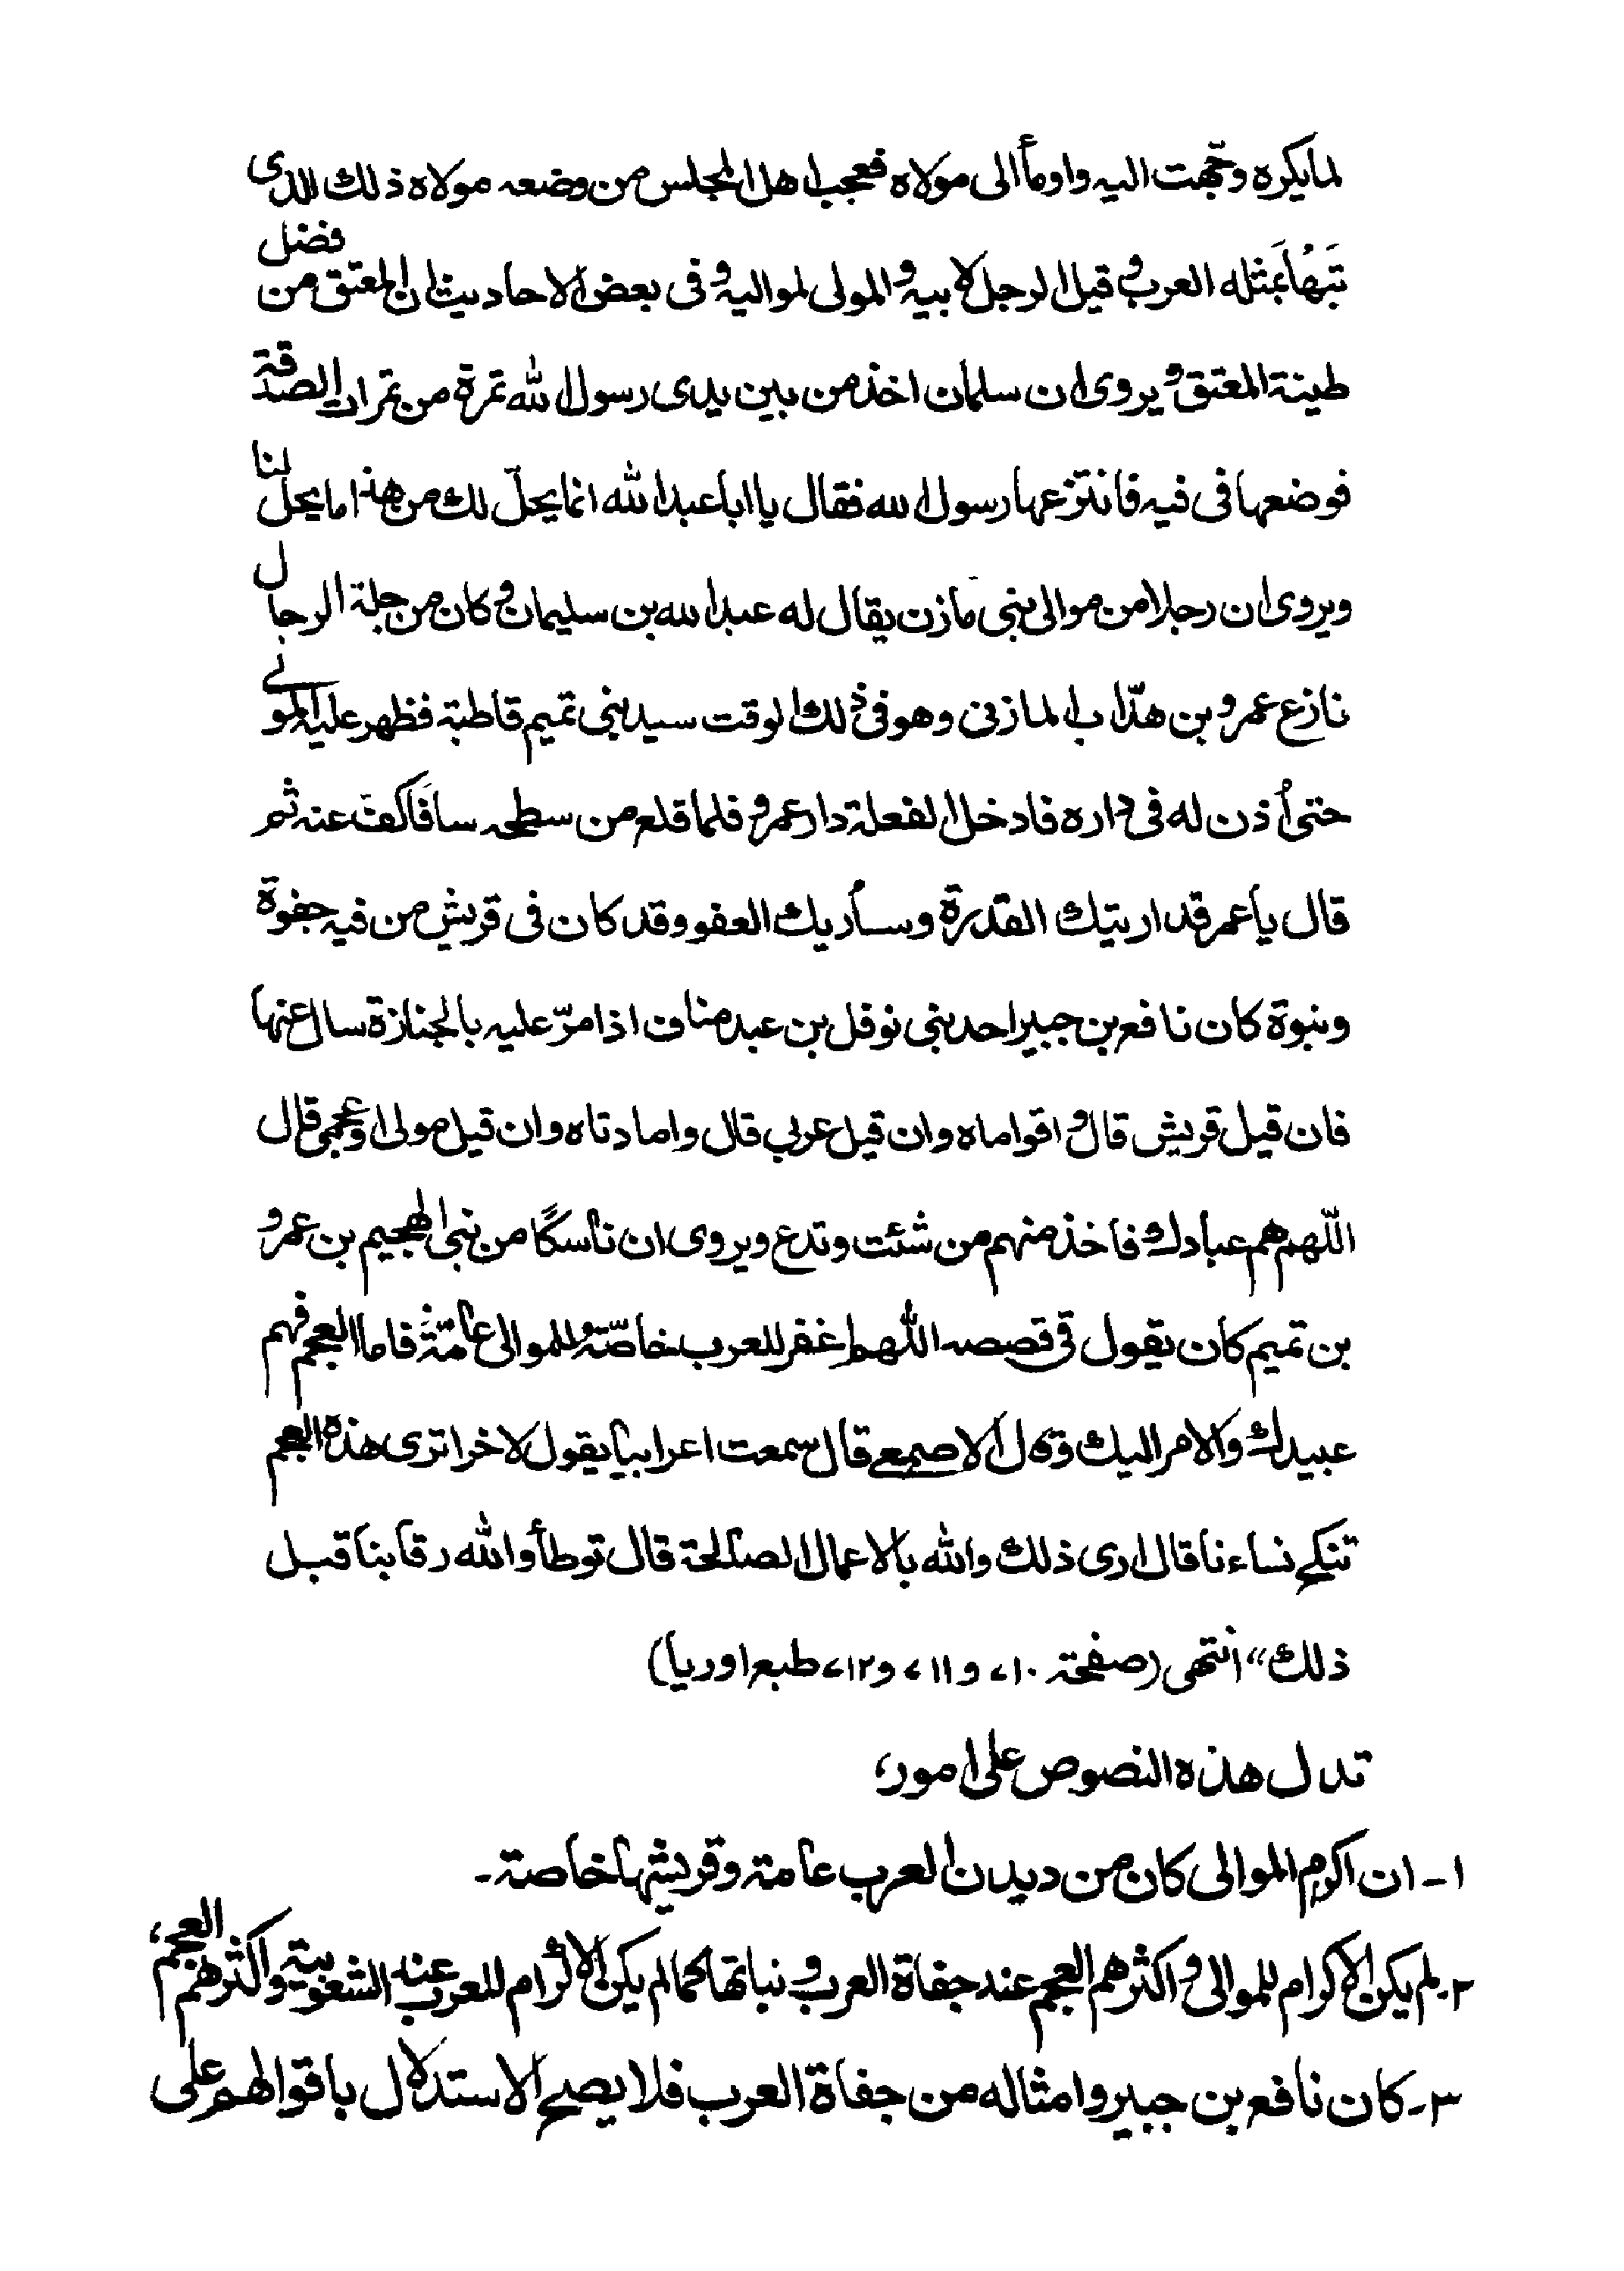 لما يكره وتجهت اليه واومأ الى مولاه فعجب اهل المجلس من وضعه مولاه ذلك الذى
تبهأ بمثله العرب وقيل الرجل لابيه والمولى لمواليه وفى بعض الاحاديث ان المعتق من فضل
طينة المعتق ويروى ان سلمان اخذ من بين يدى رسول الله تمرة من تمرات الصدقة
فوضعها فى فيه فانتزعها رسول الله فقال يا ابا عبد الله انما يحلّ لك من هذا ما يحلّ لنا
ويروى ان رجلا من موالى بنى مازن يقال له عبد الله بن سليمان وكان من جلة الرجال
نازع عمرو بن هدّاب المازنى وهو فى ذلك الوقت سيد بنى تميم قاطبة فظهر عليه المولى
حتى أذن له فى داره فادخل الفعلة دار عمرو فلما قلع من سطحه سافًا كف عنه ثم
قال يا عمر قد اريتك القدرة وسأريك العفو وقد كان فى قريش من فيه جفوة
ونبوة كان نافع بن جبير احد بنى نوفل بن عبد مناف اذا مرّ عليه بالجنازة سال عنها
فان قيل قريش قال واقواماه وان قيل عربى قال واما دتاه وان قيل مولى او عجمى قال
اللّهم هم عبادك فاخذ منهم من شئت وتدع ويروى ان ناسكًا من بنى الهجيم بن عمرو
بن تميم كان يقول فى قصصه اللّهم اغفر للعرب خاصّة وللموالى عامّة فاما العجم فهم
عبيدك والامر اليك وقال الاصمعى قال سمعت اعرابيا يقول لاخر اترى هذه العجم
تنكح نساءنا قال ارى ذلك والله بالاعمال الصالحة قال توطأ والله رقابنا قبل
ذلك“ انتهى (صفحة ٧١٠ و ٧١١ و ٧١٢ طبع اوربا)
تدل هذه النصوص على امور،
١- ان اكرم الموالى كان من ديدن العرب عامة وقريشها خاصة-
٢- لم يكن الاكرام للموالى واكثرهم العجم عند جفاة العرب و نباتها كما لم يكن الاكرام للعرب عند الشعوبية واكثرهم العجم،
٣- كان نافع بن جبير وامثاله من جفاة العرب فلا يصح الاستدلال باقوالهم على